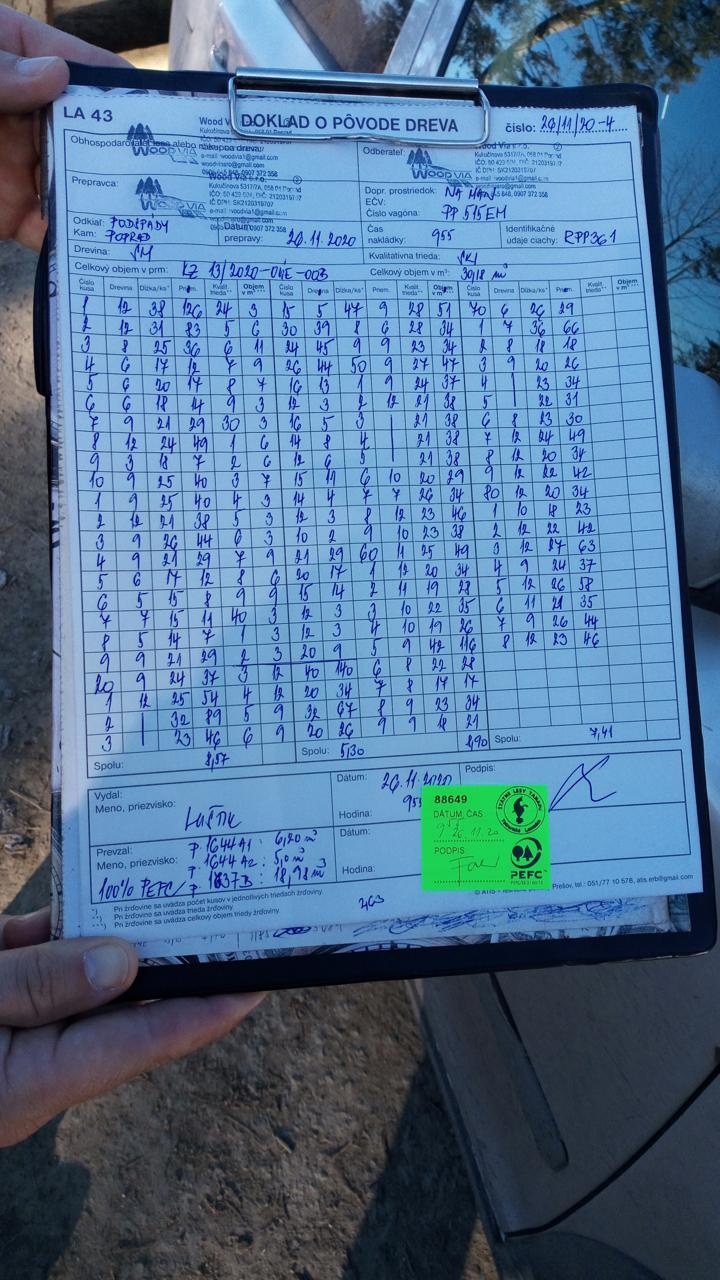 LA 43
DOKLAD O PÔVODE DREVA
číslo: 26/11/20-4
Obhospodarovateľ lesa alebo nákupca dreva:
WOODVIA
Kukučínova 5317/7A, 058 01 Poprad
e-mail: woodvia1@gmail.com
Odberateľ:
WOODVIA
Wood Via s.r.o.
Kukučínova 5317/7A, 058 01 Poprad
Prepravca:
WOODVIA
Wood Via s.r.o.
Kukučínova 5317/7A, 058 01 Poprad
IČ DPH: SK2120319707
e-mail: woodvia1@gmail.com
Dopr. prostriedok:
EČV:
Číslo vagóna: PP 515EM
Odkiaľ: PODSPADY
Kam: POPRAD
Dátum prepravy: 26.11.2020
Čas nakládky: 955
Identifikačné údaje ciachy: RPP361
Drevina: SM
Kvalitatívna trieda:
Celkový objem v prm: KZ 13/2020-04E-003
Celkový objem v m³: 30,18 m³
Číslo kusa Drevina Dĺžka/ks* Priem. Kvalit. trieda** Objem v m³***
1 12 38 126 24 3 15 5 47 9 28 51 70 6 26 29
2 12 31 83 5 6 30 39 8 6 28 34 1 7 36 66
3 8 25 36 6 11 24 45 9 9 23 34 2 8 18 18
4 6 17 12 7 9 26 44 50 9 27 47 3 9 20 26
5 6 20 17 8 7 16 13 1 9 24 37 4 | 23 34
6 6 18 14 9 3 12 3 2 12 21 38 5 | 22 31
7 9 21 29 30 3 16 5 3 | 21 38 6 8 23 30
8 12 24 49 1 6 14 8 4 | 21 38 7 12 24 49
9 3 18 7 2 6 12 6 5 | 21 38 8 12 20 34
10 9 25 40 3 7 15 11 6 10 20 29 9 12 22 42
1 9 25 40 4 3 14 4 7 7 26 34 80 12 20 34
2 12 21 38 5 3 12 3 8 12 23 46 1 10 18 23
3 9 26 44 6 3 10 2 9 10 23 38 2 12 22 42
4 9 21 29 7 9 21 29 60 11 25 49 3 12 27 63
5 6 17 12 8 6 20 17 1 12 20 34 4 9 24 37
6 5 15 8 9 9 15 14 2 11 19 28 5 12 26 58
7 7 15 11 40 3 12 3 3 10 22 35 6 11 21 35
8 5 14 7 1 3 12 3 4 10 19 26 7 9 26 44
9 9 21 29 2 3 20 9 5 9 42 116 8 12 23 46
20 9 24 37 3 12 40 140 6 8 22 28
1 12 25 54 4 12 20 34 7 8 17 17
2 | 32 89 5 9 32 67 8 9 23 34
3 | 23 46 6 9 20 26 9 9 18 21
Spolu: 8,57 Spolu: 5,30 8,90 Spolu: 7,41
Vydal:
Meno, priezvisko:
Dátum: 26.11.2020
Hodina: 955
Podpis:
Prevzal:
Meno, priezvisko:
Dátum:
Hodina:
P. 1644 A1 : 6,20 m³
P. 1644 A2 : 5,0 m³
100% PEFC/ P. 1637 B : 18,98 m³
88649
DÁTUM, ČAS
26.11.20
PODPIS
ŠTÁTNE LESY TANAPU
PEFC
*) Pri žrďovine sa uvádza počet kusov v jednotlivých triedach žrďoviny.
**) Pri žrďovine sa uvádza trieda žrďoviny.
***) Pri žrďovine sa uvádza celkový objem triedy žrďoviny.
© ATIS
Prešov, tel.: 051/77 10 578, atis.erb@gmail.com